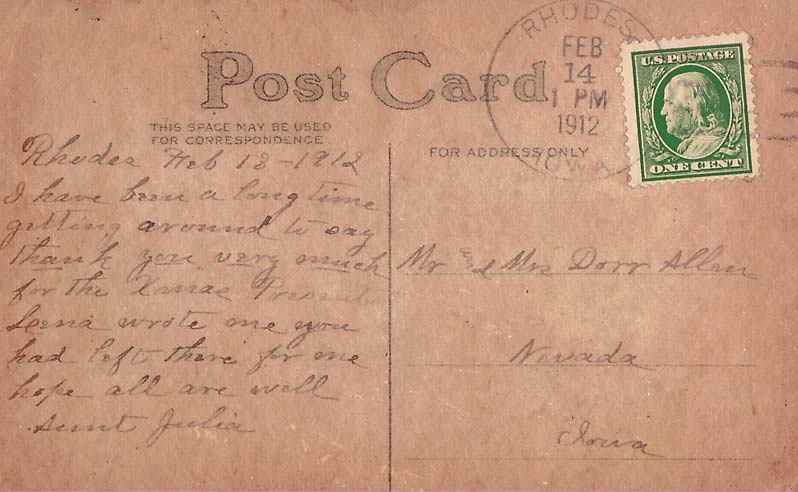 Post Card
THIS SPACE MAY BE USED
FOR CORRESPONDENCE
FOR ADDRESS ONLY
RHODES
FEB
14
1 PM
1912
IOWA
U.S. POSTAGE
ONE CENT
Rhodes Feb 13 - 1912
I have been a long time
getting around to say
thank you very much
for the Xmas Present
Leena wrote me you
had left there for me
hope all are well
Aunt Julia
Mr & Mrs Dorr Allen
Nevada
Iowa